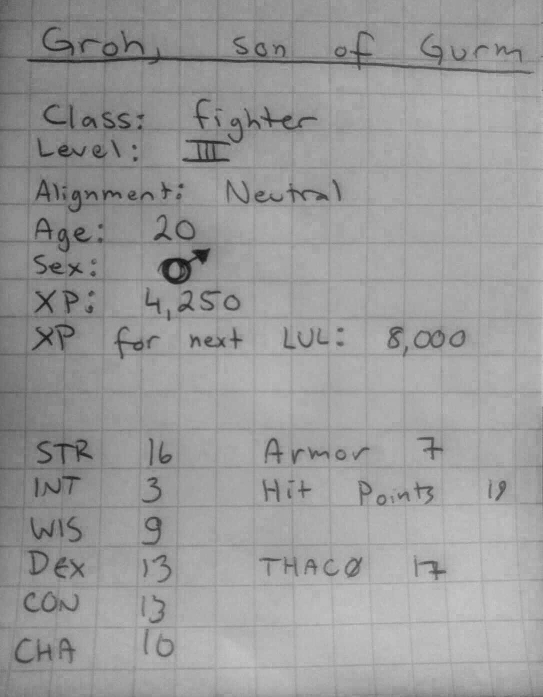 Groh, son of Gurm
Class: fighter
Level: III
Alignment: Neutral
Age: 20
Sex: ♂
XP: 4,250
XP for next LVL: 8,000
STR 16 Armor 7
INT 3 Hit Points 19
WIS 9
DEX 13 THACØ 17
CON 13
CHA 10